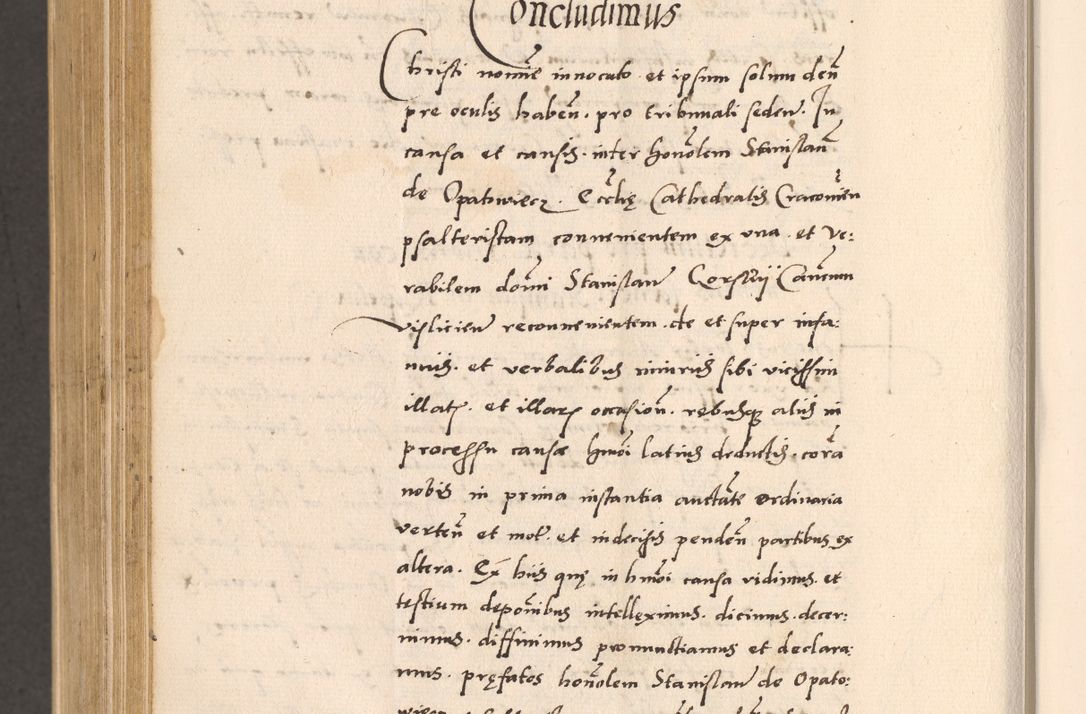 Concludimus
Christi nomīe innocato et ipsum solum deū
pre oculis habeñ. pro tribunali sedeñ. In
causa et causis. inter honōlem Stanislaū
de Opatowiecz. Ecclię Cathedralis Cracovieñ
psalteristam convenientem ex una. et Ve:
rabilem domi Stanislaū Gorskij Canonicum
visliciēn reconvenientem. de et super infa:
miis. et verbalibus iniuriis sibi vicissim
illatis. et illarum occasioñ. rebusque aliis in
processu causæ hmōi latius deductis. corā
nobis in prima instantia auctāte ordinaria
verteñ et mot. et indecisis pendeñ partibus ex
altera. Ex hiis quę in hmōi causa vidimus. et
testium depōnibus intelleximus. dicimus. decer:
nimus. diffinimus pronunctiamus et declara:
mus. pręfatos honōlem Stanislaum de Opato: